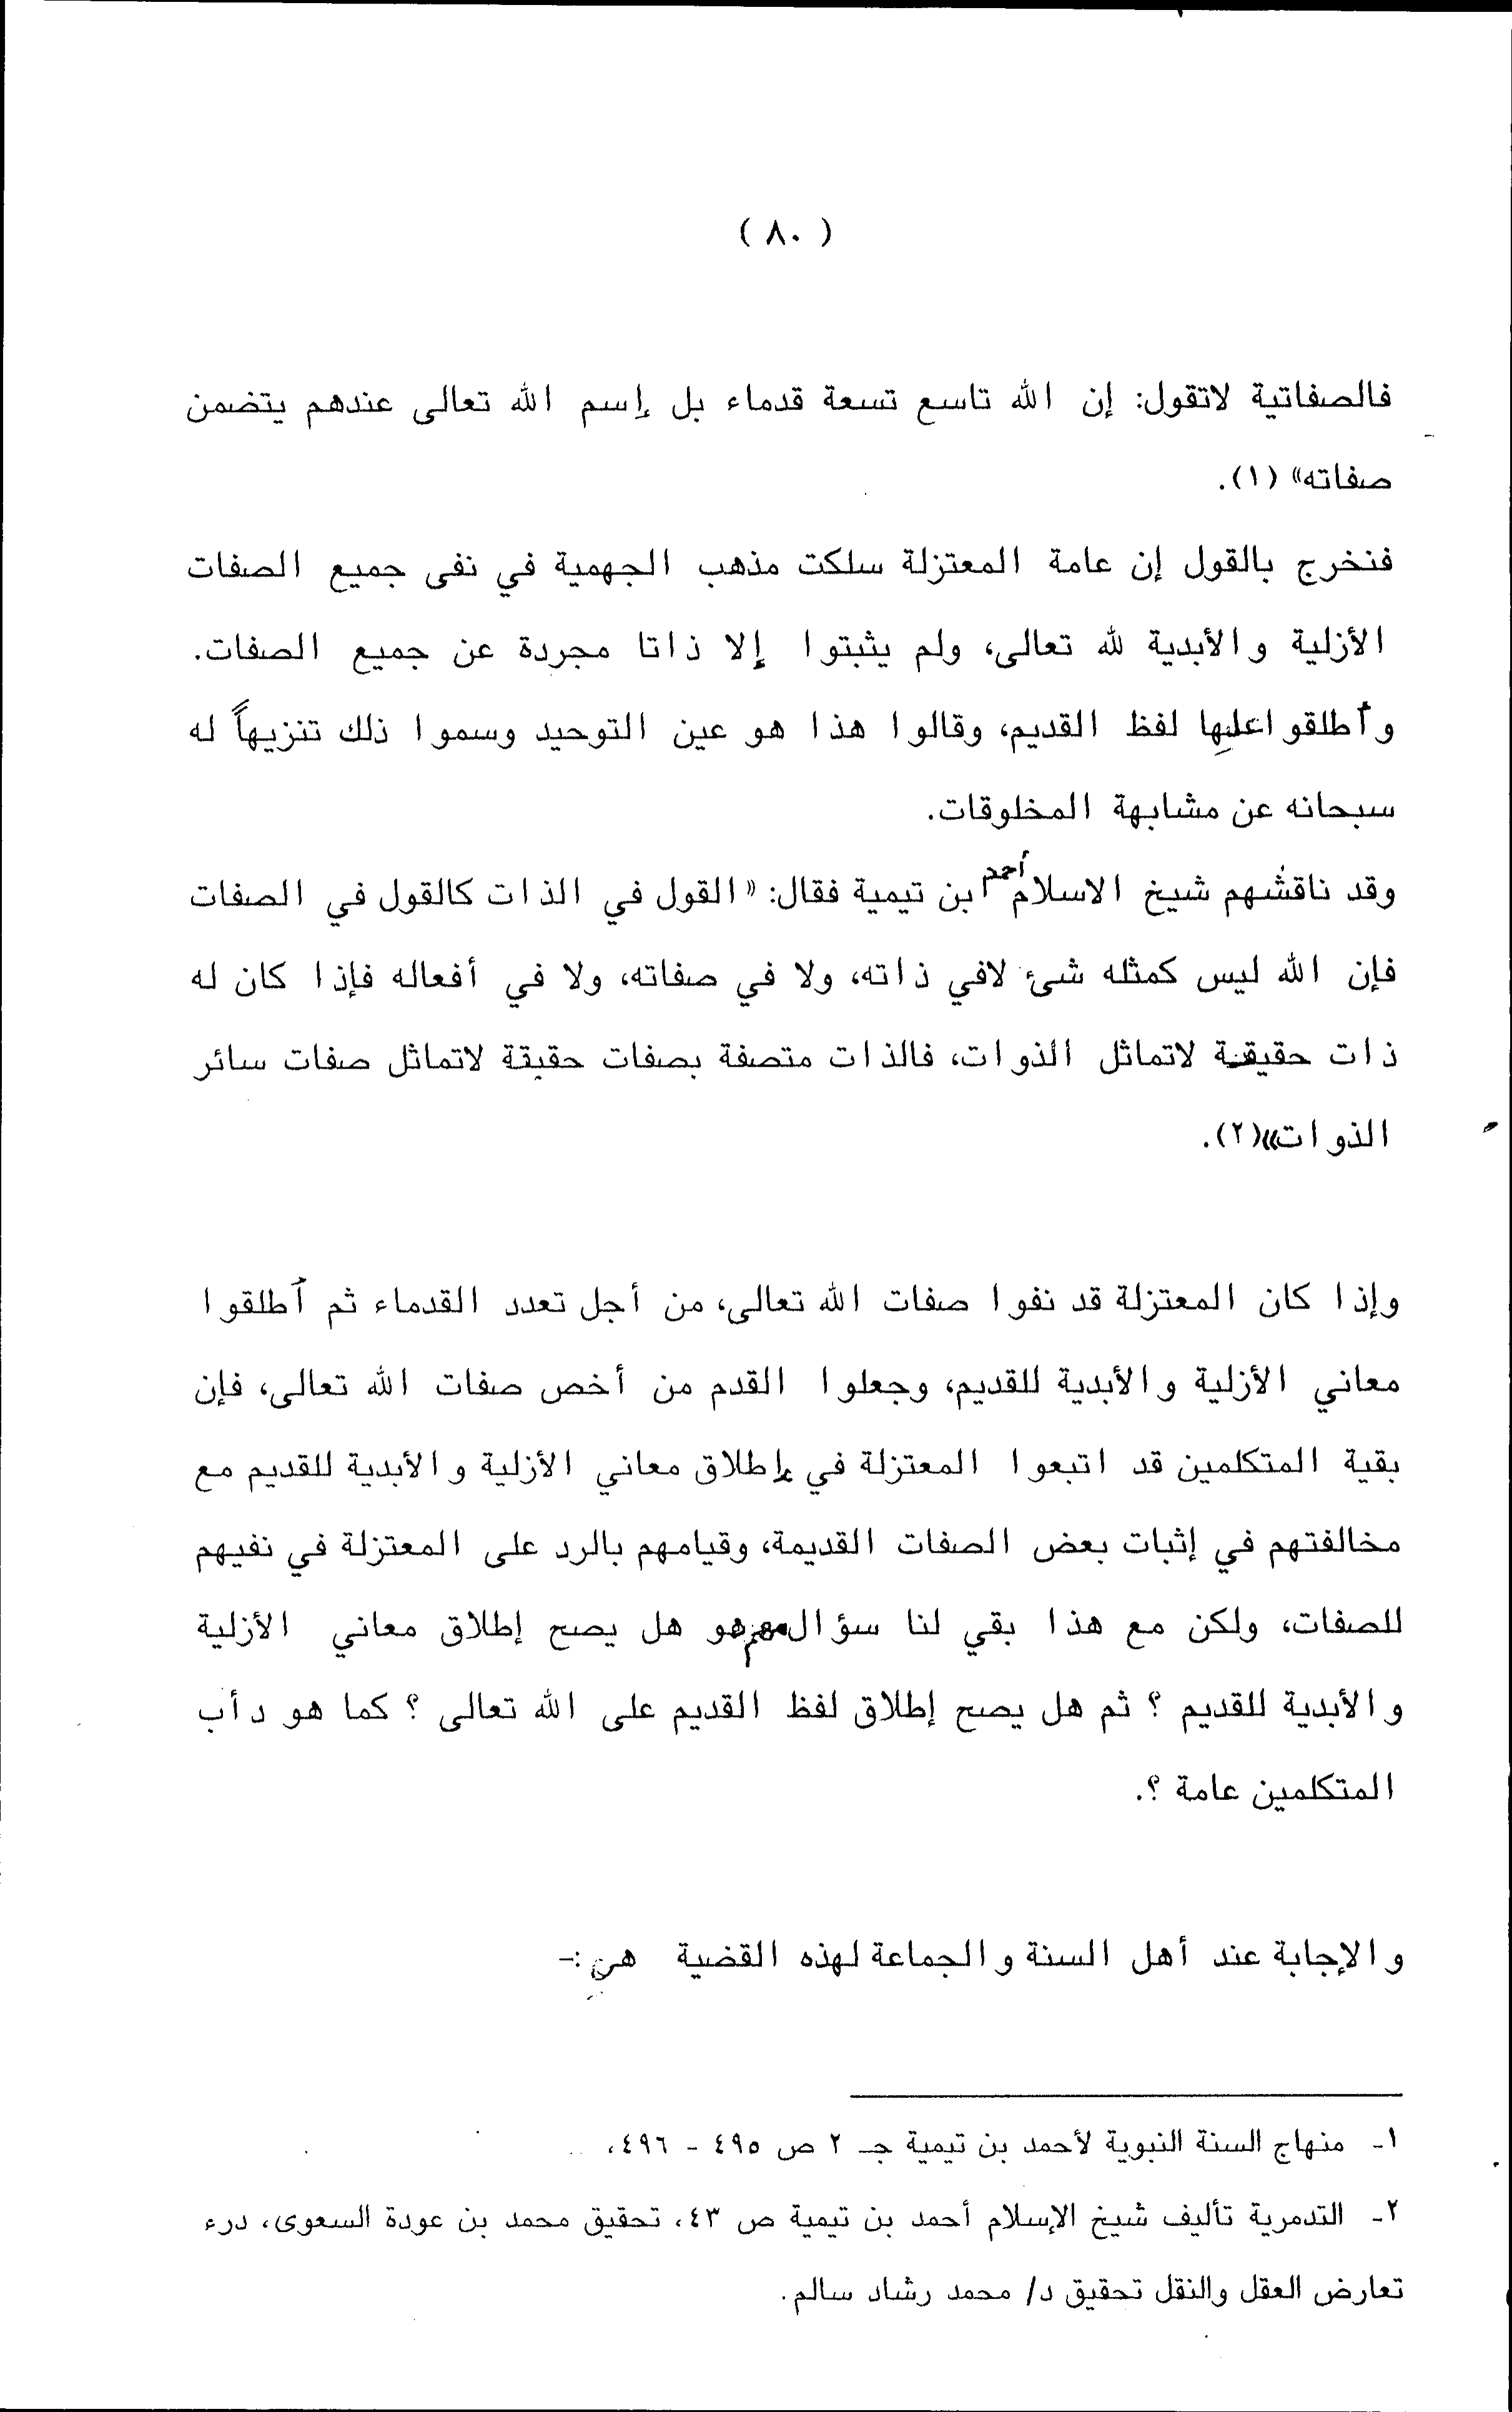 ( ٨٠ )
فالصفاتية لاتقول: إن الله تاسع تسعة قدماء بل إسم الله تعالى عندهم يتضمن
صفاته» (١).
فنخرج بالقول إن عامة المعتزلة سلكت مذهب الجهمية في نفى جميع الصفات
الأزلية والأبدية لله تعالى، ولم يثبتوا إلا ذاتا مجردة عن جميع الصفات.
وأطلقوا عليها لفظ القديم، وقالوا هذا هو عين التوحيد وسموا ذلك تنزيهاً له
سبحانه عن مشابهة المخلوقات.
وقد ناقشهم شيخ الاسلام أحمد ابن تيمية فقال: «القول في الذات كالقول في الصفات
فإن الله ليس كمثله شئ لافي ذاته، ولا في صفاته، ولا في أفعاله فإذا كان له
ذات حقيقة لاتماثل الذوات، فالذات متصفة بصفات حقيقة لاتماثل صفات سائر
الذوات»(٢).
وإذا كان المعتزلة قد نفوا صفات الله تعالى، من أجل تعدد القدماء ثم أطلقوا
معاني الأزلية والأبدية للقديم، وجعلوا القدم من أخص صفات الله تعالى، فإن
بقية المتكلمين قد اتبعوا المعتزلة في إطلاق معاني الأزلية والأبدية للقديم مع
مخالفتهم في إثبات بعض الصفات القديمة، وقيامهم بالرد على المعتزلة في نفيهم
للصفات، ولكن مع هذا بقي لنا سؤال مهم هو هل يصح إطلاق معاني الأزلية
والأبدية للقديم ؟ ثم هل يصح إطلاق لفظ القديم على الله تعالى ؟ كما هو دأب
المتكلمين عامة ؟.
والإجابة عند أهل السنة والجماعة لهذه القضية هي :-
١- منهاج السنة النبوية لأحمد بن تيمية جـ ٢ ص ٤٩٥ - ٤٩٦،
٢- التدمرية تأليف شيخ الإسلام أحمد بن تيمية ص ٤٣، تحقيق محمد بن عودة السعوى، درء
تعارض العقل والنقل تحقيق د/ محمد رشاد سالم.